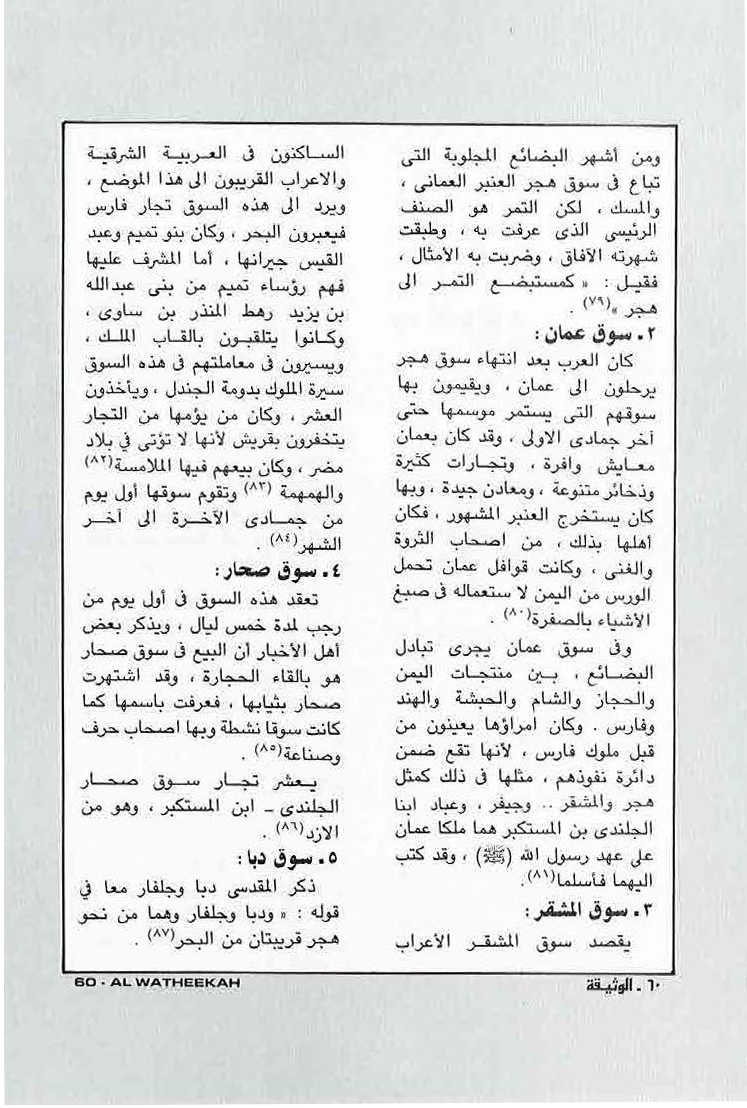 ومن أشهر البضائع المجلوبة التى
تباع فى سوق هجر العنبر العمانى ،
والمسك ، لكن التمر هو الصنف
الرئيسى الذى عرفت به ، وطبقت
شهرته الآفاق ، وضربت به الأمثال ،
فقيل : « كمستبضع التمر الى
هجر »(٧٩) .
٢ . سوق عمان :
كان العرب بعد انتهاء سوق هجر
يرحلون الى عمان ، ويقيمون بها
سوقهم التى يستمر موسمها حتى
آخر جمادى الاولى ، وقد كان بعمان
معايش وافرة ، وتجارات كثيرة
وذخائر متنوعة ، ومعادن جيدة ، وبها
كان يستخرج العنبر المشهور ، فكان
أهلها بذلك ، من اصحاب الثروة
والغنى ، وكانت قوافل عمان تحمل
الورس من اليمن لا ستعماله فى صبغ
الأشياء بالصفرة(٨٠) .
وفى سوق عمان يجرى تبادل
البضائع ، بين منتجات اليمن
والحجاز والشام والحبشة والهند
وفارس . وكان امراؤها يعينون من
قبل ملوك فارس ، لأنها تقع ضمن
دائرة نفوذهم ، مثلها فى ذلك كمثل
هجر والمشقر .. وجيفر ، وعباد ابنا
الجلندى بن المستكبر هما ملكا عمان
على عهد رسول الله (ﷺ) ، وقد كتب
اليهما فأسلما(٨١).
٣ . سوق المشقر :
يقصد سوق المشقر الأعراب
الساكنون فى العربية الشرقية
والاعراب القريبون الى هذا الموضع ،
ويرد الى هذه السوق تجار فارس
فيعبرون البحر ، وكان بنو تميم وعبد
القيس جيرانها ، أما المشرف عليها
فهم رؤساء تميم من بنى عبدالله
بن يزيد رهط المنذر بن ساوى ،
وكانوا يتلقبون بالقاب الملك ،
ويسيرون فى معاملتهم فى هذه السوق
سيرة الملوك بدومة الجندل ، ويأخذون
العشر ، وكان من يؤمها من التجار
يتخفرون بقريش لأنها لا تؤتى في بلاد
مضر ، وكان بيعهم فيها الملامسة(٨٢)
والهمهمة (٨٣) وتقوم سوقها أول يوم
من جمادى الآخرة الى آخر
الشهر(٨٤) .
٤ . سوق صحار :
تعقد هذه السوق فى أول يوم من
رجب لمدة خمس ليال ، ويذكر بعض
أهل الأخبار أن البيع فى سوق صحار
هو بالقاء الحجارة ، وقد اشتهرت
صحار بثيابها ، فعرفت باسمها كما
كانت سوقا نشطة وبها اصحاب حرف
وصناعة(٨٥) .
يعشر تجار سوق صحار
الجلندى – ابن المستكبر ، وهو من
الازد(٨٦) .
٥ . سوق دبا :
ذكر المقدسى دبا وجلفار معا في
قوله : « ودبا وجلفار وهما من نحو
هجر قريبتان من البحر(٨٧) .
٦٠ . الوثيقة
60 - AL WATHEEKAH